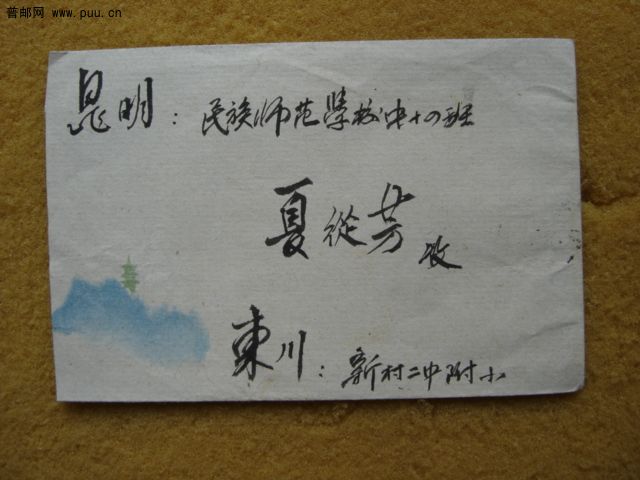 普邮网 www.puu.cn
昆明：民族师范学校中十四班
夏從芳 收
東川：新村二中附小